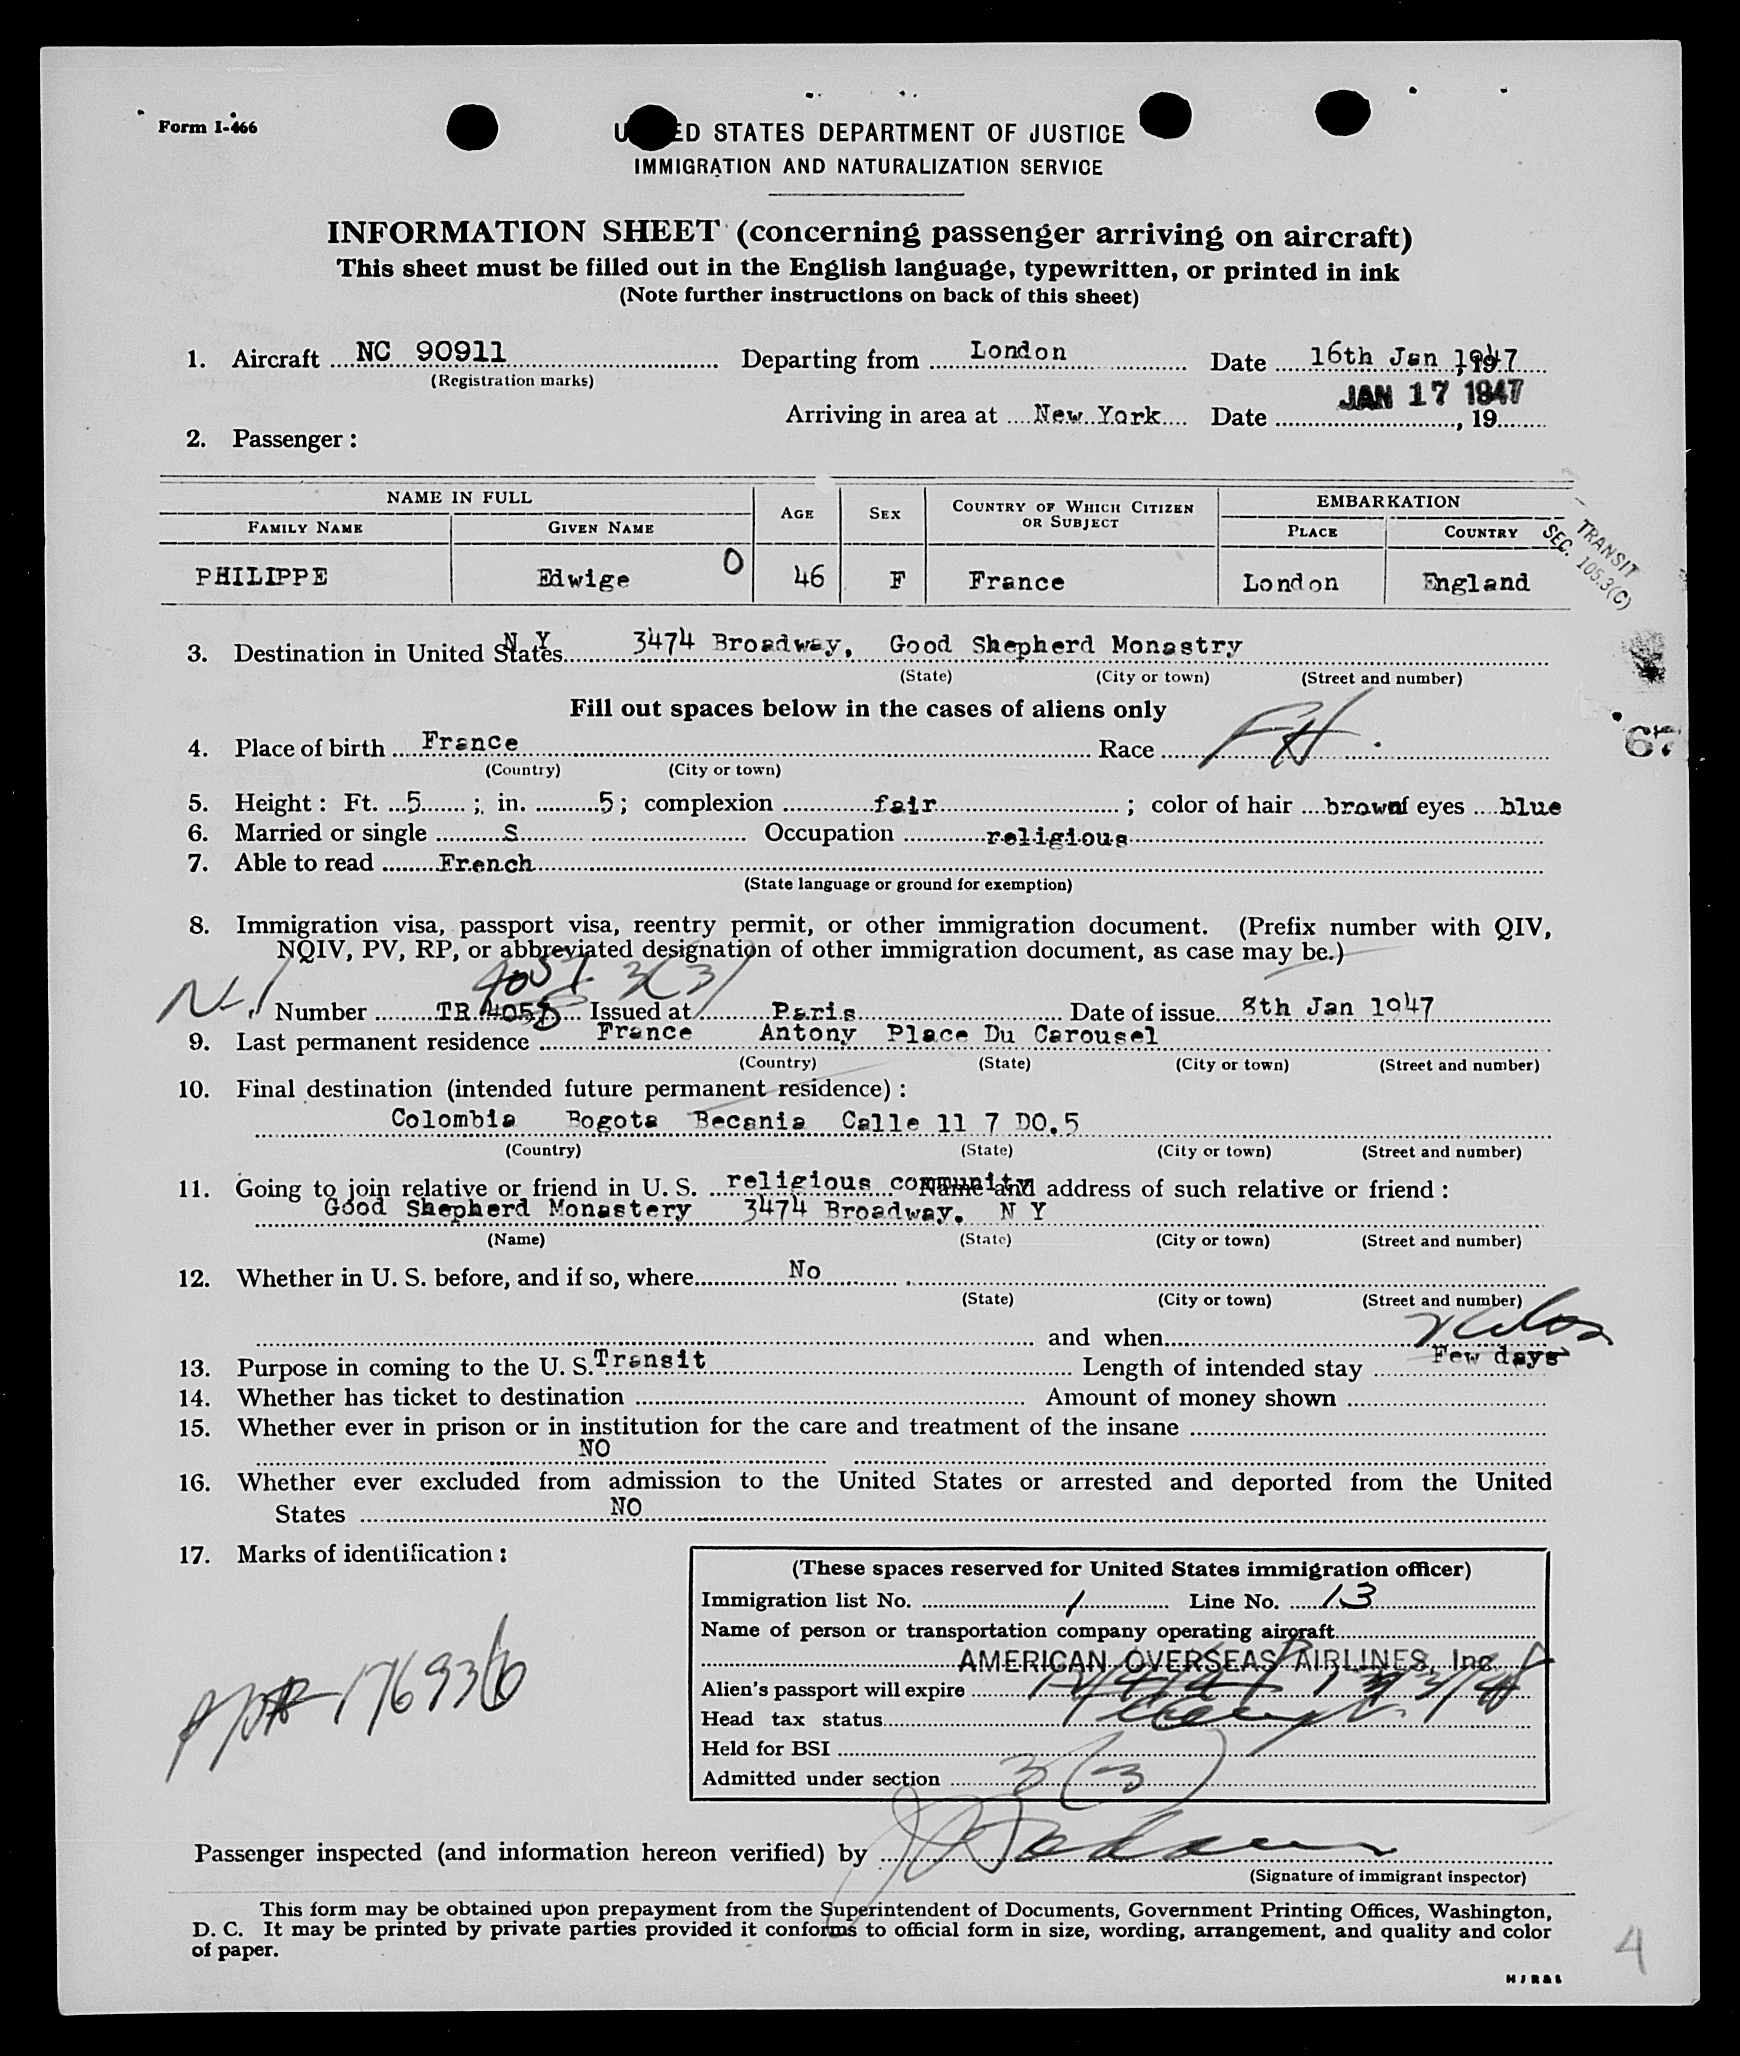 Form I-466
UNITED STATES DEPARTMENT OF JUSTICE
IMMIGRATION AND NATURALIZATION SERVICE
INFORMATION SHEET (concerning passenger arriving on aircraft)
This sheet must be filled out in the English language, typewritten, or printed in ink
(Note further instructions on back of this sheet)
1. Aircraft NC 90911 Departing from London Date 16th Jan 1947, 19
(Registration marks)
JAN 17 1947
Arriving in area at New York Date , 19
2. Passenger:
NAME IN FULL AGE SEX COUNTRY OF WHICH CITIZEN OR SUBJECT EMBARKATION
FAMILY NAME GIVEN NAME PLACE COUNTRY
TRANSIT
SEC. 105.3(C)
PHILIPPE Edwige O 46 F France London England
3. Destination in United States N Y 3474 Broadway, Good Shepherd Monastry
(State) (City or town) (Street and number)
67
Fill out spaces below in the cases of aliens only
4. Place of birth France Race FH
(Country) (City or town)
5. Height: Ft. 5; in. 5; complexion fair; color of hair brown of eyes blue
6. Married or single S Occupation religious
7. Able to read French
(State language or ground for exemption)
8. Immigration visa, passport visa, reentry permit, or other immigration document. (Prefix number with QIV,
NQIV, PV, RP, or abbreviated designation of other immigration document, as case may be.)
4057 3(3)
Number TR 4058 Issued at Paris Date of issue 8th Jan 1947
9. Last permanent residence France Antony Place Du Carousel
(Country) (State) (City or town) (Street and number)
10. Final destination (intended future permanent residence):
Colombia Bogota Becania Calle 11 7 DO.5
(Country) (State) (City or town) (Street and number)
11. Going to join relative or friend in U. S. religious community Name and address of such relative or friend:
Good Shepherd Monastery 3474 Broadway. N Y
(Name) (State) (City or town) (Street and number)
12. Whether in U. S. before, and if so, where No
(State) (City or town) (Street and number)
and when
13. Purpose in coming to the U. S. Transit Length of intended stay Few days
14. Whether has ticket to destination Amount of money shown
15. Whether ever in prison or in institution for the care and treatment of the insane
NO
16. Whether ever excluded from admission to the United States or arrested and deported from the United
States NO
17. Marks of identification:
(These spaces reserved for United States immigration officer)
Immigration list No. 1 Line No. 13
Name of person or transportation company operating aircraft
AMERICAN OVERSEAS AIRLINES, Inc.
Alien's passport will expire
Head tax status
Held for BSI
Admitted under section 3(3)
176936
Passenger inspected (and information hereon verified) by
(Signature of immigrant inspector)
This form may be obtained upon prepayment from the Superintendent of Documents, Government Printing Offices, Washington,
D. C. It may be printed by private parties provided it conforms to official form in size, wording, arrangement, and quality and color
of paper.
4